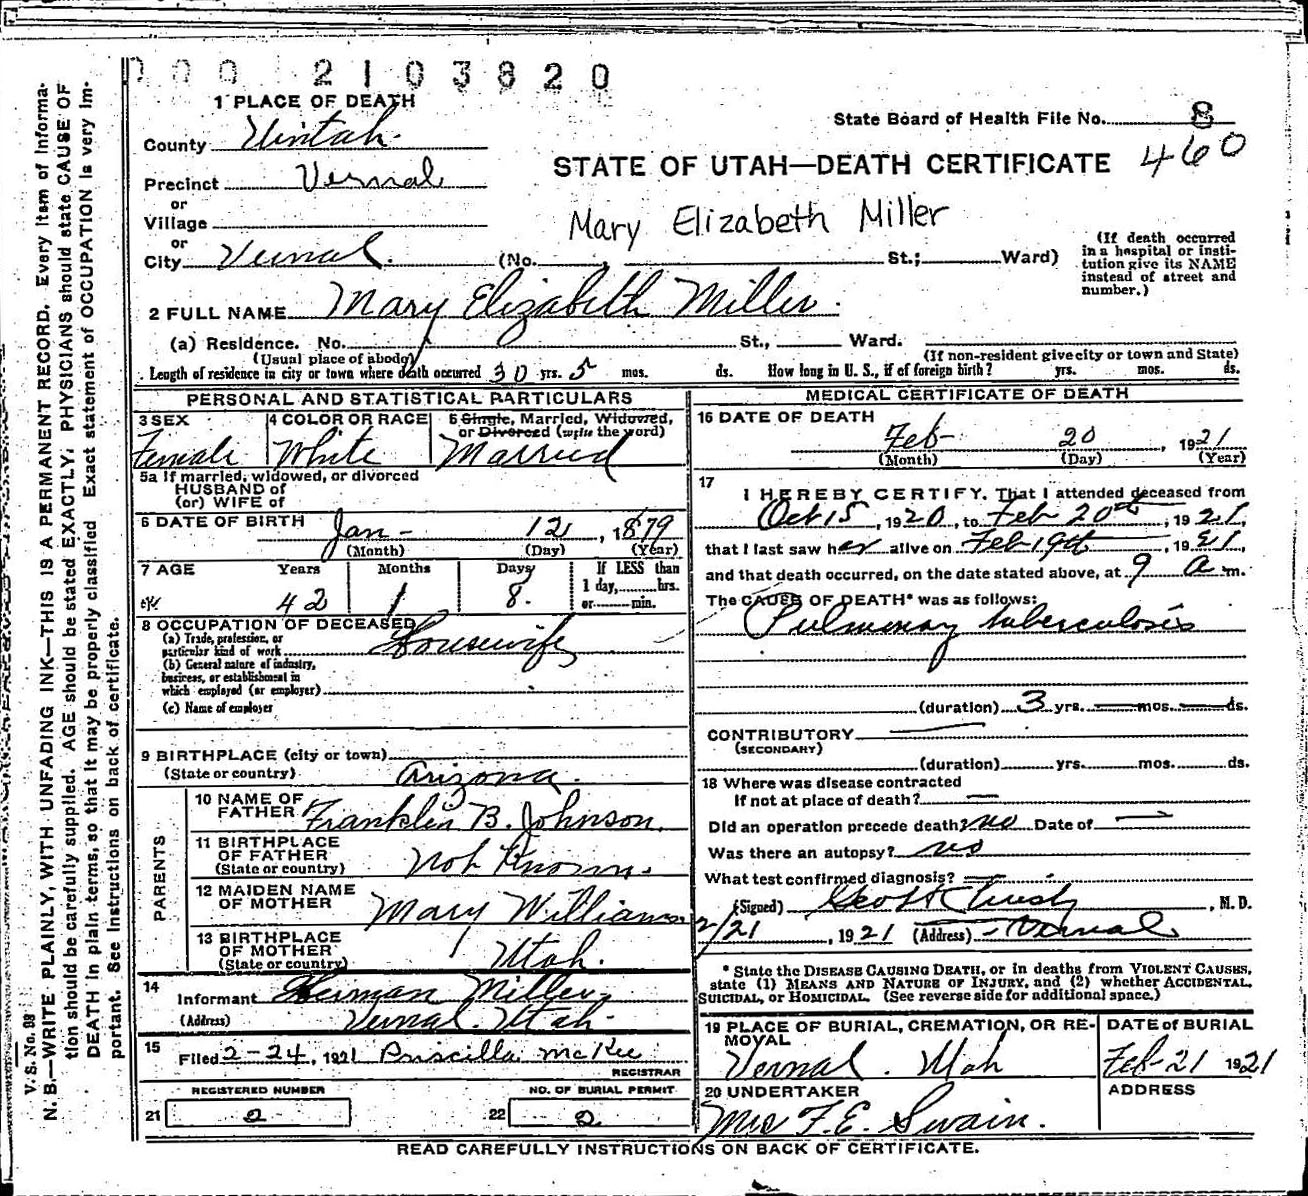 000 2103820
1 PLACE OF DEATH
State Board of Health File No. 8
460
County Uintah.
STATE OF UTAH—DEATH CERTIFICATE
Precinct Vernal
or
Village
Mary Elizabeth Miller
or
City Vernal. (No. , St.; Ward)
(If death occurred in a hospital or insti-
tution give its NAME instead of street and number.)
2 FULL NAME Mary Elizabeth Miller.
(a) Residence. No. St., Ward.
(Usual place of abode) (If non-resident give city or town and State)
Length of residence in city or town where death occurred 30 yrs. 5 mos. ds. How long in U. S., if of foreign birth? yrs. mos. ds.
PERSONAL AND STATISTICAL PARTICULARS
3 SEX
Female
4 COLOR OR RACE
White
5 Single, Married, Widowed,
or Divorced (write the word)
Married
5a If married, widowed, or divorced
HUSBAND of
(or) WIFE of
6 DATE OF BIRTH Jan- 12, 1879
(Month) (Day) (Year)
7 AGE Years Months Days If LESS than
1 day, hrs.
42 1 8. or min.
8 OCCUPATION OF DECEASED
(a) Trade, profession, or
particular kind of work Housewife
(b) General nature of industry,
business, or establishment in
which employed (or employer)
(c) Name of employer
9 BIRTHPLACE (city or town)
(State or country) Arizona.
PARENTS
10 NAME OF
FATHER Franklin B. Johnson.
11 BIRTHPLACE
OF FATHER
(State or country) Not Known.
12 MAIDEN NAME
OF MOTHER Mary Williams
13 BIRTHPLACE
OF MOTHER
(State or country) Utah.
14
Informant Herman Miller,
(Address) Vernal. Utah.
15
Filed 2-24, 1921 Priscilla McKee
REGISTRAR
REGISTERED NUMBER NO. OF BURIAL PERMIT
21 2 22 2
MEDICAL CERTIFICATE OF DEATH
16 DATE OF DEATH
Feb- 20 1921
(Month) (Day) (Year)
17
I HEREBY CERTIFY, That I attended deceased from
Oct 15, 1920, to Feb 20th, 1921,
that I last saw her alive on Feb 19th, 1921,
and that death occurred, on the date stated above, at 9 a m.
The CAUSE OF DEATH* was as follows:
Pulmonary tuberculosis
(duration) 3 yrs. — mos. — ds.
CONTRIBUTORY —
(SECONDARY)
(duration) yrs. mos. ds.
18 Where was disease contracted
If not at place of death? —
Did an operation precede death? no Date of —
Was there an autopsy? no
What test confirmed diagnosis? —
(Signed) , M. D.
2/21, 1921 (Address) Vernal
* State the DISEASE CAUSING DEATH, or in deaths from VIOLENT CAUSES,
state (1) MEANS AND NATURE OF INJURY, and (2) whether ACCIDENTAL,
SUICIDAL, or HOMICIDAL. (See reverse side for additional space.)
19 PLACE OF BURIAL, CREMATION, OR RE-
MOVAL
Vernal. Utah
DATE of BURIAL
Feb-21 1921
20 UNDERTAKER
Mrs F. E. Swain.
ADDRESS
READ CAREFULLY INSTRUCTIONS ON BACK OF CERTIFICATE.
V. S. No. 98
N. B.—WRITE PLAINLY, WITH UNFADING INK—THIS IS A PERMANENT RECORD. Every item of informa-
tion should be carefully supplied. AGE should be stated EXACTLY. PHYSICIANS should state CAUSE OF
DEATH in plain terms, so that it may be properly classified. Exact statement of OCCUPATION is very im-
portant. See instructions on back of certificate.